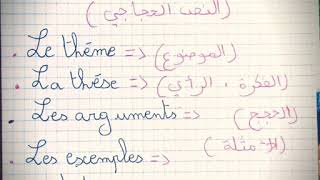 (النص الحجاجي)
Le thème => (الموضوع)
La thèse => (الفكرة ، الرأي)
Les arguments => (الحجج)
Les exemples => (الأمثلة)